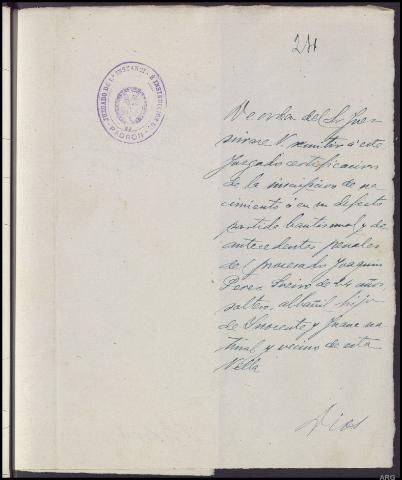 271
JUZGADO DE 1ª INSTANCIA É INSTRUCCIÓN
PADRON
De orden del Sr Juez
sirvase V. remitir á este
Juzgado certificacion
de la inscripcion de na
cimiento ó en su defecto
partida bautismal y de
antecedentes penales
del procesado Joaquin
Perez Loeiro de 24 años,
soltero, albañil hijo
de Inocente y Juana na
tural y vecino de esta
Villa
Dios
ARG